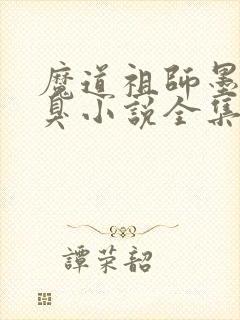 魔道祖師墨
臭小説全集
譚荣韶